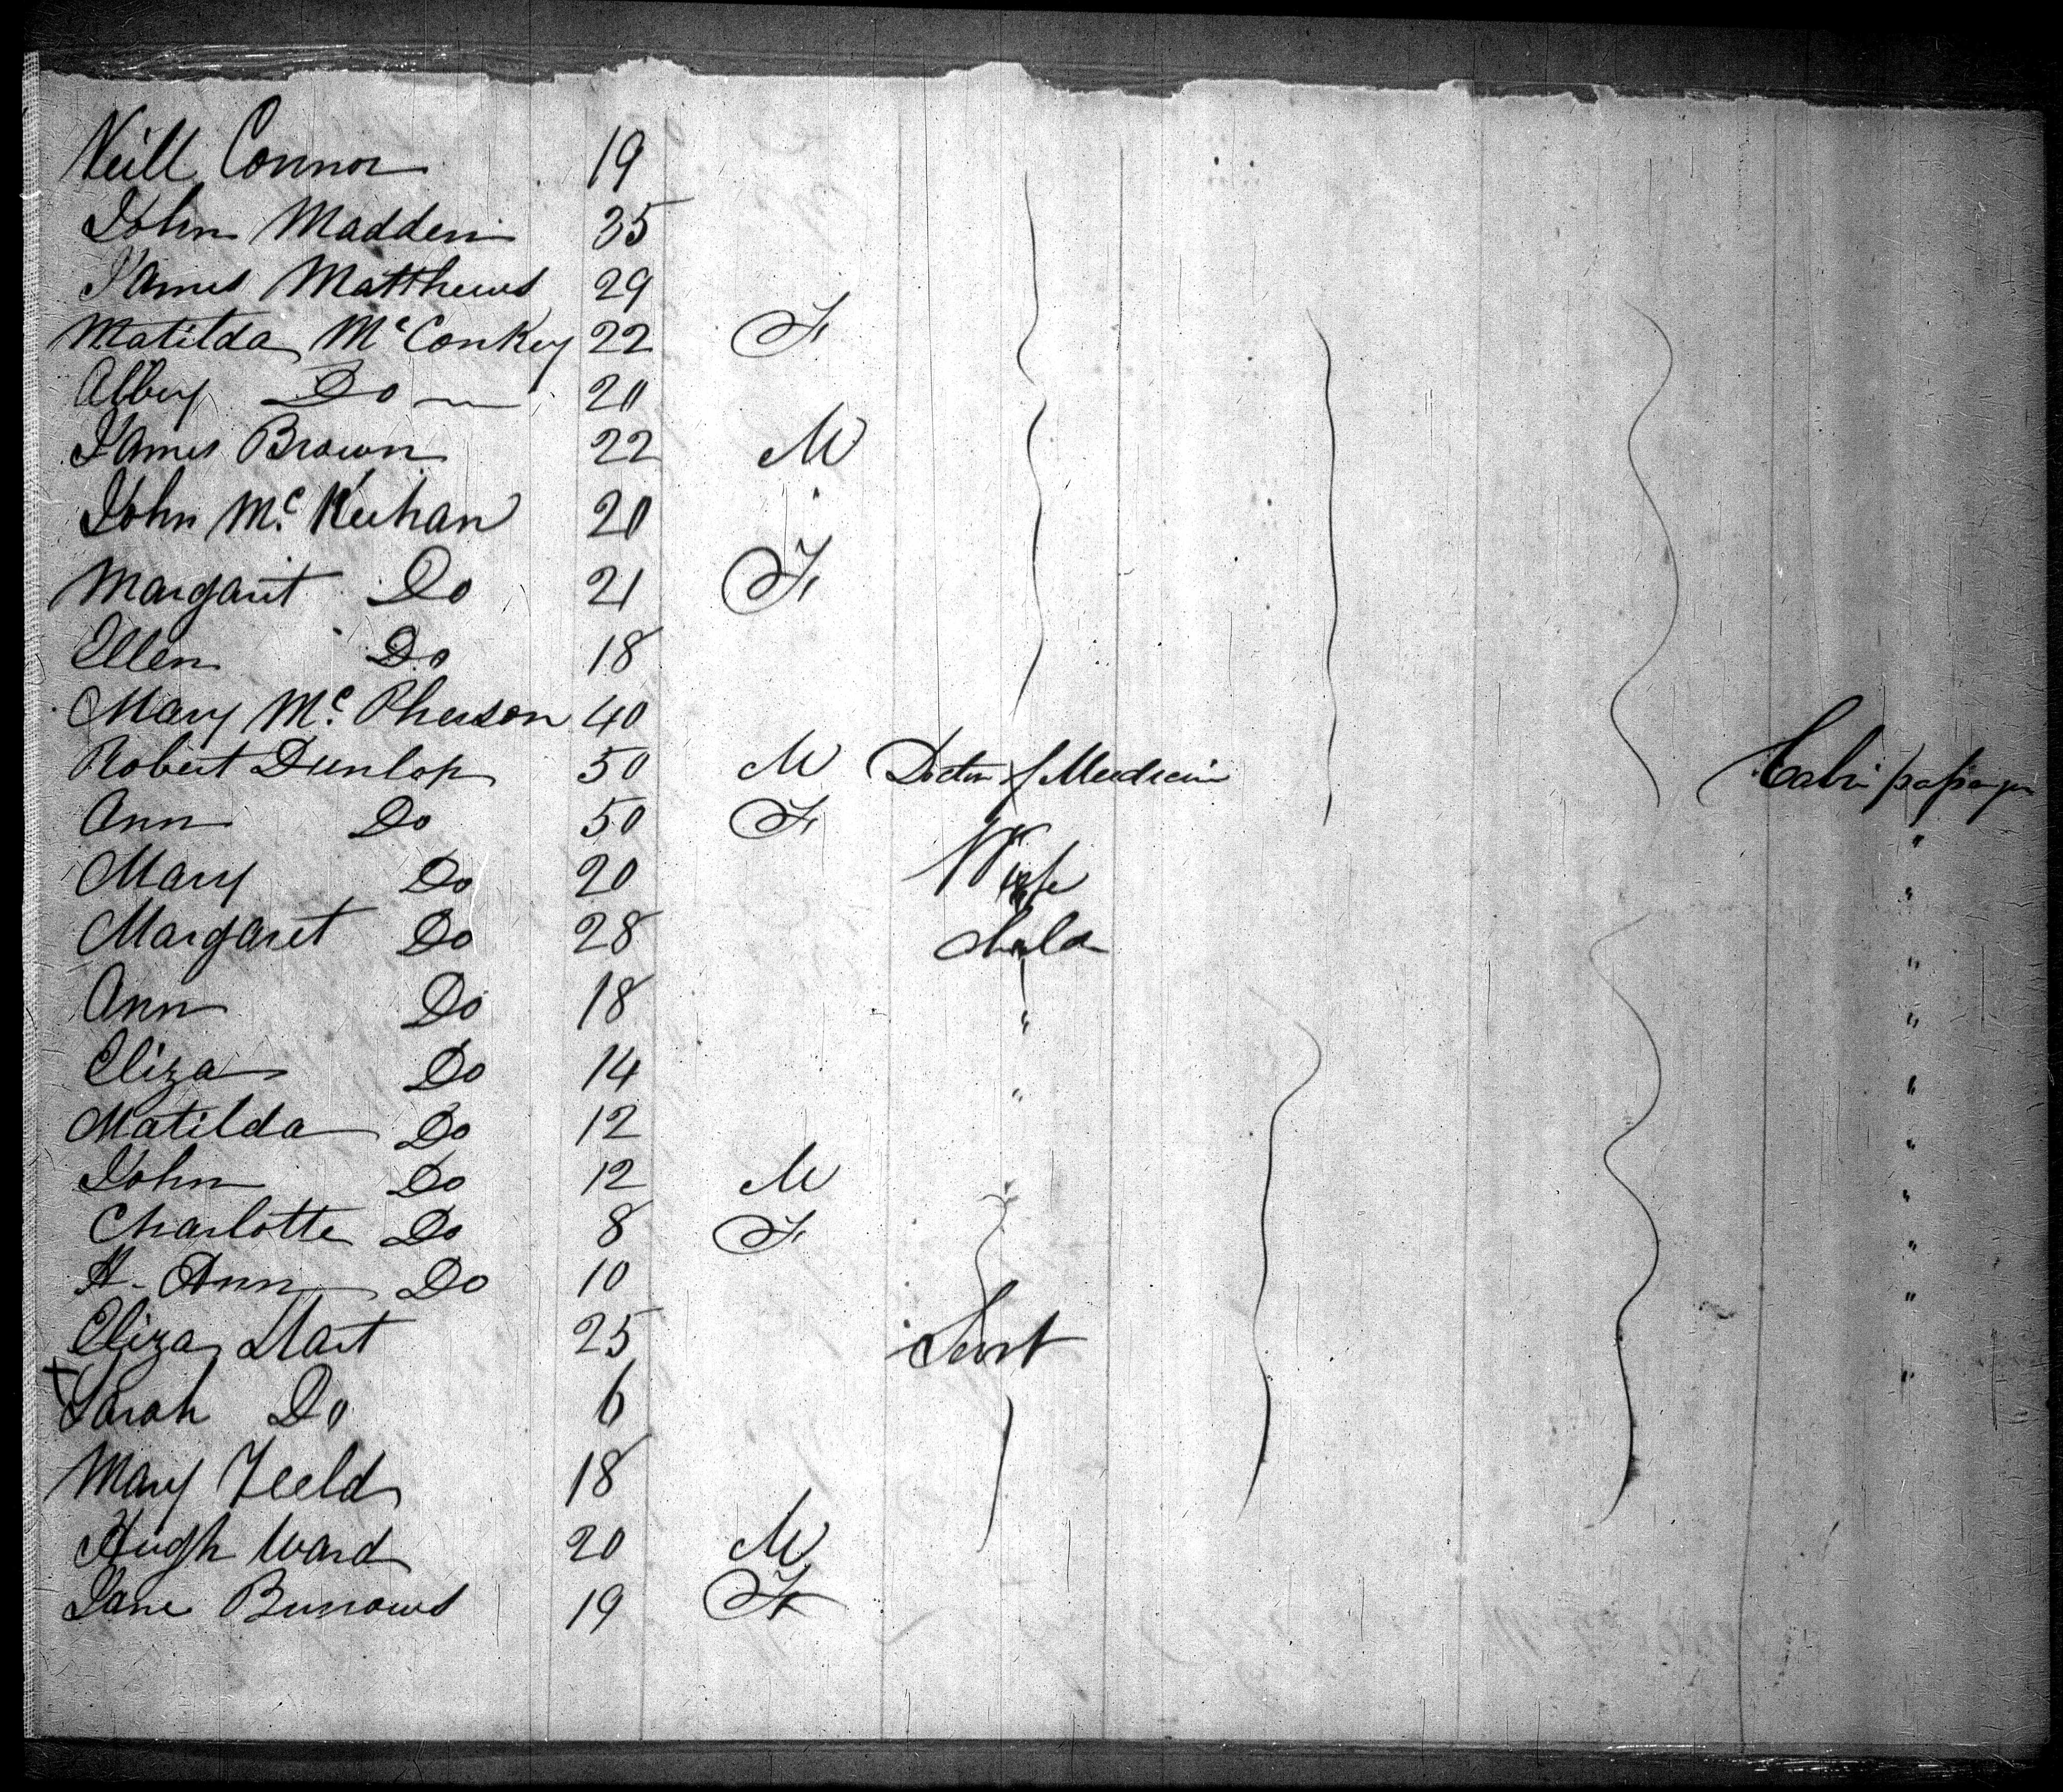 Neill Connor 19
John Madden 35
James Matthews 29
Matilda McConkey 22 F
Alley Do 20
James Brown 22 M
John Mc. Keehan 20
Margaret Do 21 F
Ellen Do 18
Mary Mc. Pherson 40
Robert Dunlop 50 M Doctor of Medicine Cabin passenger
Ann Do 50 F "
Mary Do 20 Wife "
Margaret Do 28 Child "
Ann Do 18 " "
Eliza Do 14 " "
Matilda Do 12 "
John Do 12 M "
Charlotte Do 8 F "
H. Ann Do 10 "
Eliza Hart 25 Servt "
X Sarah Do 6
Mary Feeld 18
Hugh Ward 20 M
Jane Burrows 19 F